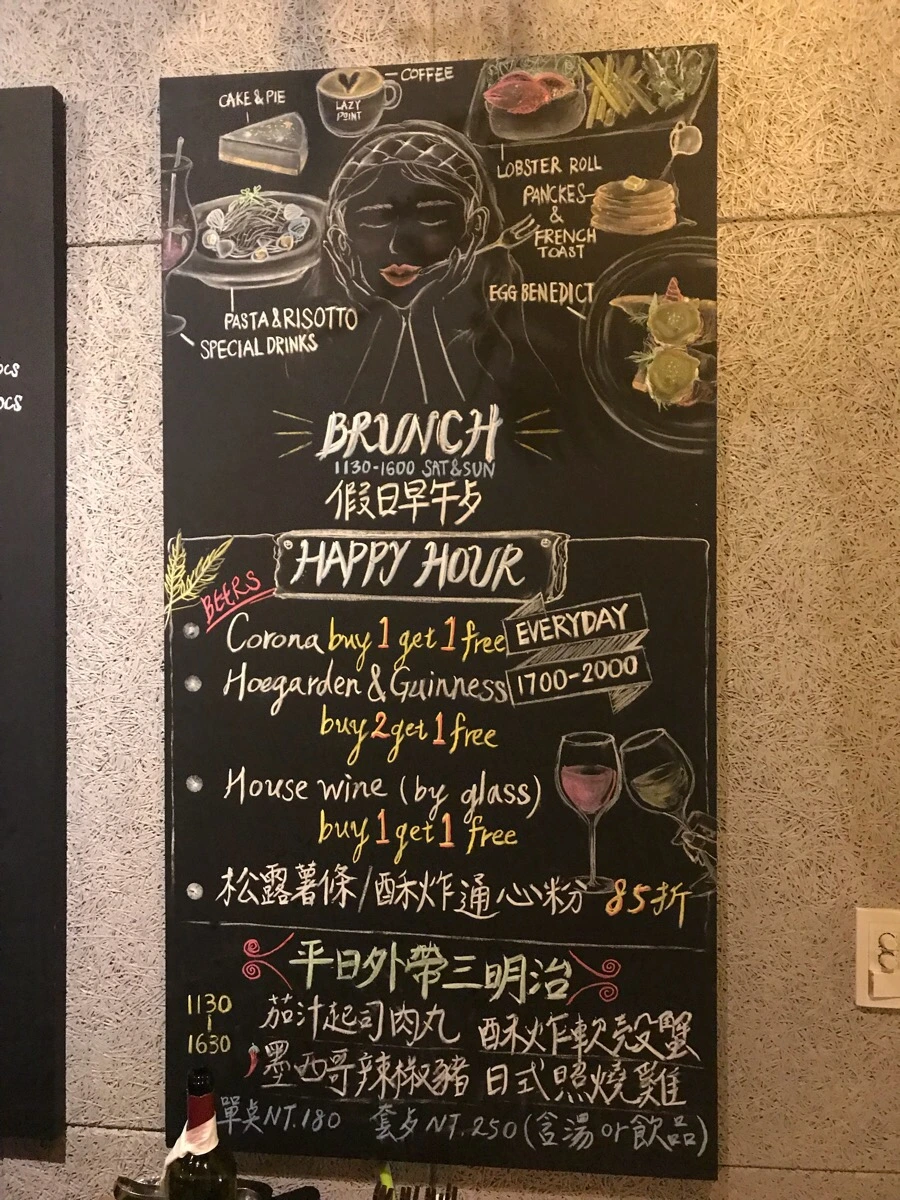 COFFEE
CAKE & PIE
LAZY
POINT
LOBSTER ROLL
PANCKES
&
FRENCH
TOAST
EGG BENEDICT
PASTA & RISOTTO
SPECIAL DRINKS
OCS
OCS
BRUNCH
1130-1600 SAT & SUN
假日早午歺
HAPPY HOUR
BEERS
EVERYDAY
1700-2000
Corona buy 1 get 1 free
Hoegarden & Guinness
buy 2 get 1 free
House wine (by glass)
buy 1 get 1 free
松露薯條/酥炸通心粉 85折
平日外帶三明治
1130
|
1630
茄汁起司肉丸 酥炸軟殼蟹
墨西哥辣椒豬 日式照燒雞
單桌NT.180 套歺NT.250(含湯or飲品)